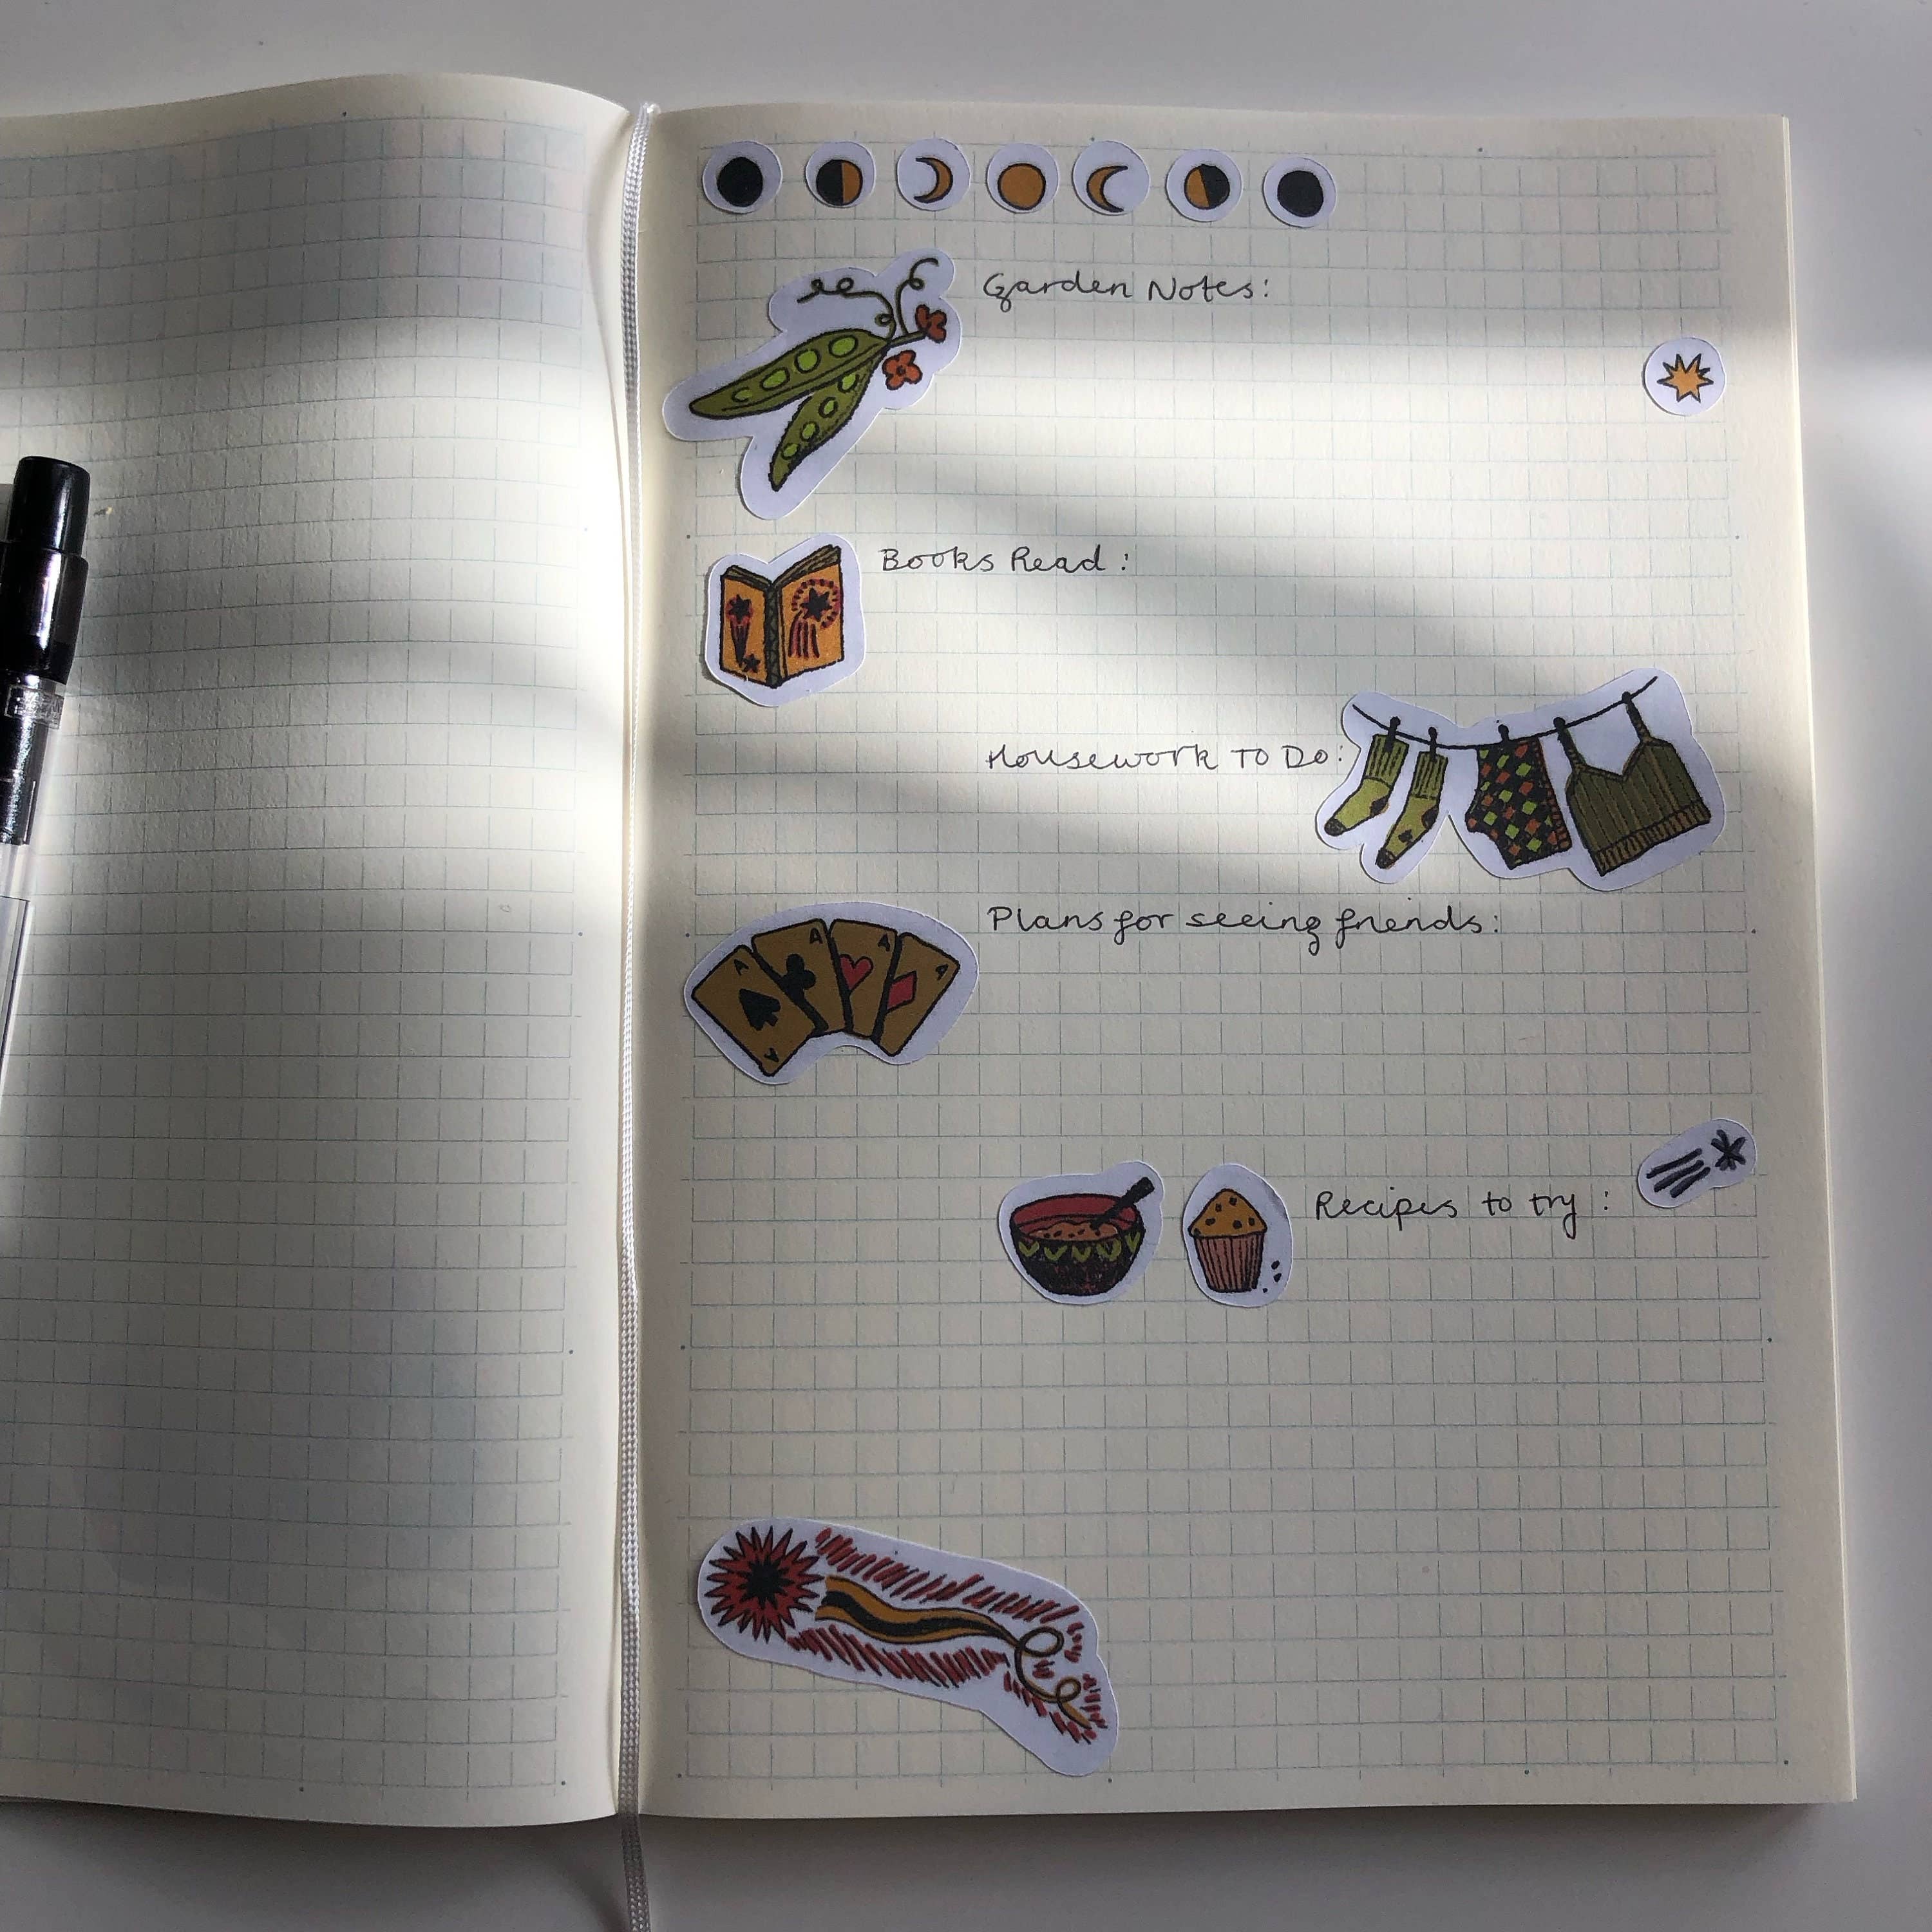 Garden Notes:
Books Read:
Housework To Do:
A
A
A
A
A
Plans for seeing friends:
Recipes to try: